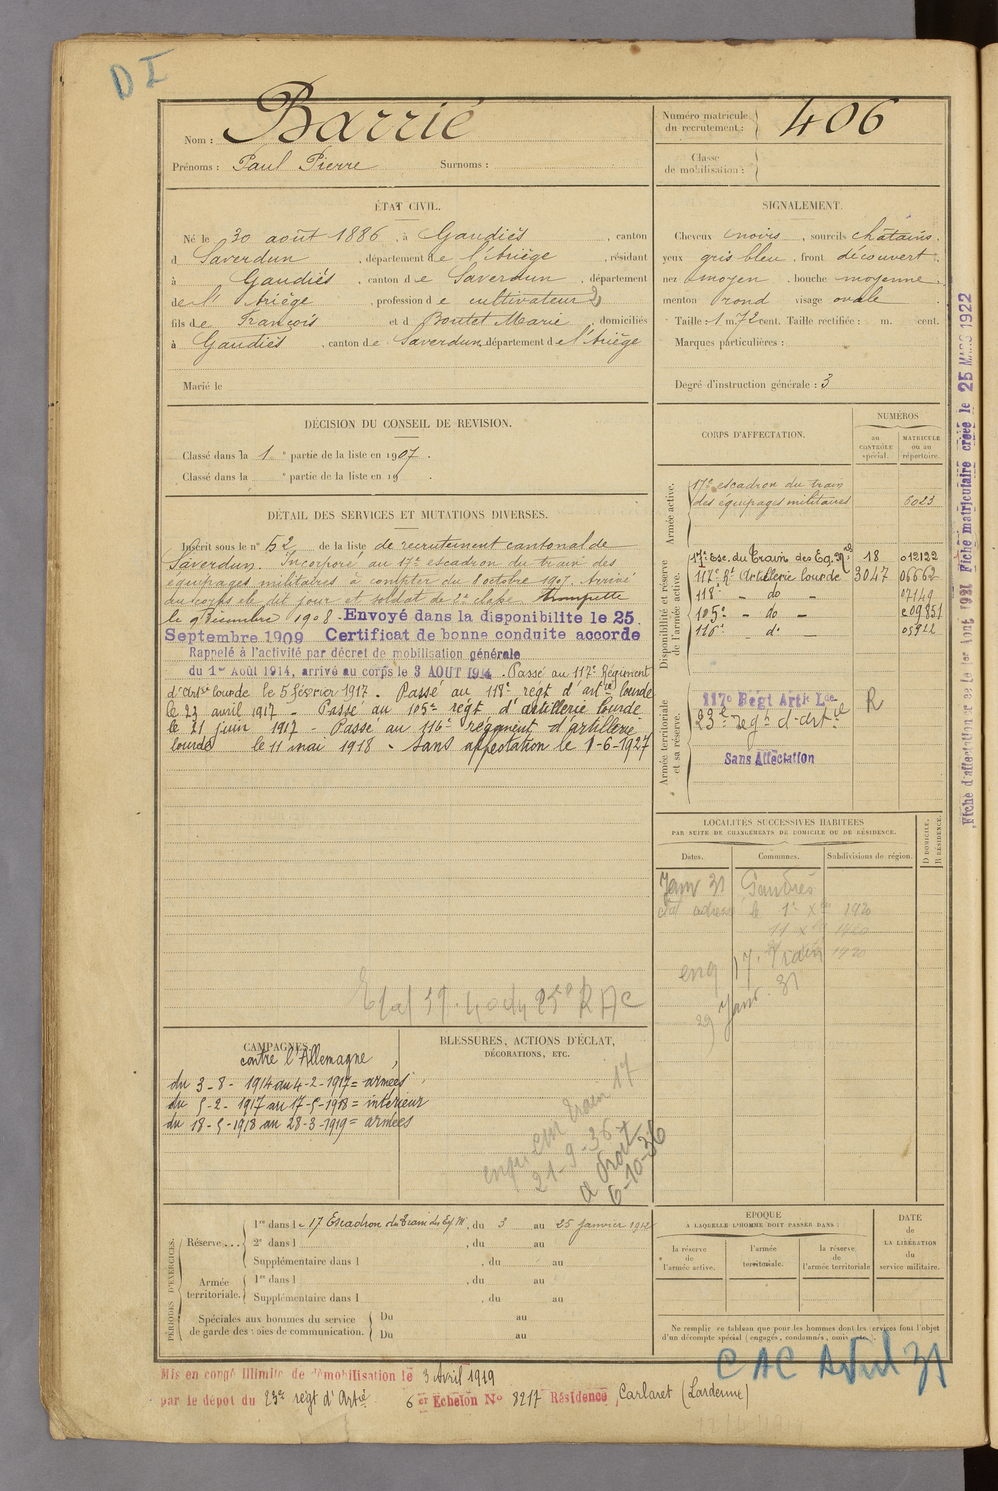 D I
Nom : Barrié
Prénoms : Paul Pierre Surnoms :
Numéro matricule du recrutement : 406
Classe de mobilisation :
ÉTAT CIVIL.
Né le 30 août 1886, à Gaudiès, canton
d Saverdun, département de l'Ariège, résidant
à Gaudiès, canton de Saverdun, département
de l'Ariège, profession de cultivateur
fils de François et d Boutet Marie, domiciliés
à Gaudiès, canton de Saverdun, département de l'Ariège
Marié le
SIGNALEMENT.
Cheveux noirs, sourcils châtains,
yeux gris bleu, front découvert,
nez moyen, bouche moyenne,
menton rond visage ovale
Taille : 1 m. 72 cent. Taille rectifiée : m. cent.
Marques particulières :
Degré d'instruction générale : 3
DÉCISION DU CONSEIL DE REVISION.
Classé dans la 1e partie de la liste en 1907.
Classé dans la e partie de la liste en 19
DÉTAIL DES SERVICES ET MUTATIONS DIVERSES.
Inscrit sous le n° 52 de la liste de recrutement cantonal de
Saverdun. Incorporé au 17e escadron du train des
équipages militaires à compter du 8 octobre 1907. Arrivé
au corps le dit jour et soldat de 2e classe. trompette
le 9 Décembre 1908. Envoyé dans la disponibilite le 25
Septembre 1909 Certificat de bonne conduite accorde
Rappelé à l'activité par décret de mobilisation générale
du 1er Août 1914, arrivé au corps le 3 AOUT 1914. Passé au 117e Régiment
d'Artie lourde le 5 février 1917. Passé au 118e regt d'artie lourde
le 23 avril 1917 - Passé au 105e regt d'artillerie lourde
le 21 juin 1917 - Passé au 116e régiment d'artillerie
lourde le 11 mai 1918 - Sans affectation le 1-6-1927
CORPS D'AFFECTATION.
NUMÉROS
au CONTRÔLE spécial.
MATRICULE ou au répertoire.
Armée active.
17e escadron du train
des équipages militaires 6023
Disponibilité et réserve de l'armée active.
17e Esc. du Train des Eq. Mres 18 012122
117e Rt Artillerie lourde 3047 06662
118e - do - 07149
105e - do - 09851
116e - do - 05922
Armée territoriale et sa réserve.
117e Régt Artie Lde R
23e regt d'artie
Sans Affectation
Fiche d'affectation créée le 1er Août 1921 Fiche matriculaire créée le 25 MARS 1922
LOCALITÉS SUCCESSIVES HABITÉES
PAR SUITE DE CHANGEMENTS DE DOMICILE OU DE RÉSIDENCE.
Dates. Communes. Subdivisions de région.
D DOMICILE. R RÉSIDENCE.
Janv 31
1920
1920
enq 17e 1920
29 Janv. 31
CAMPAGNES.
contre l'Allemagne
du 3-8-1914 au 4-2-1917 = armées
du 5-2-1917 au 17-5-1918 = intérieur
du 18-5-1918 au 28-3-1919 = armées
BLESSURES, ACTIONS D'ÉCLAT,
DÉCORATIONS, ETC.
train 17
21-9-36
6-10-36
PÉRIODES D'EXERCICES.
Réserve... 1re dans le 17 Escadron du Train des Eq. M., du 3 au 25 janvier 1912
2e dans l , du au
Supplémentaire dans l , du au
Armée territoriale. 1re dans l , du au
Supplémentaire dans l , du au
Spéciales aux hommes du service de garde des voies de communication. Du au
Du au
ÉPOQUE
À LAQUELLE L'HOMME DOIT PASSER DANS :
la réserve de l'armée active.
l'armée territoriale.
la réserve de l'armée territoriale
DATE de LA LIBÉRATION du service militaire.
Ne remplir ce tableau que pour les hommes dont les services font l'objet
d'un décompte spécial (engagés, condamnés, omis, etc.).
CAC Avril 31
Mis en congé illimité de démobilisation le 3 Avril 1919
par le dépôt du 23e regt d'Artie 6e Echelon No 3217 Résidence Carlaret (Larderne)